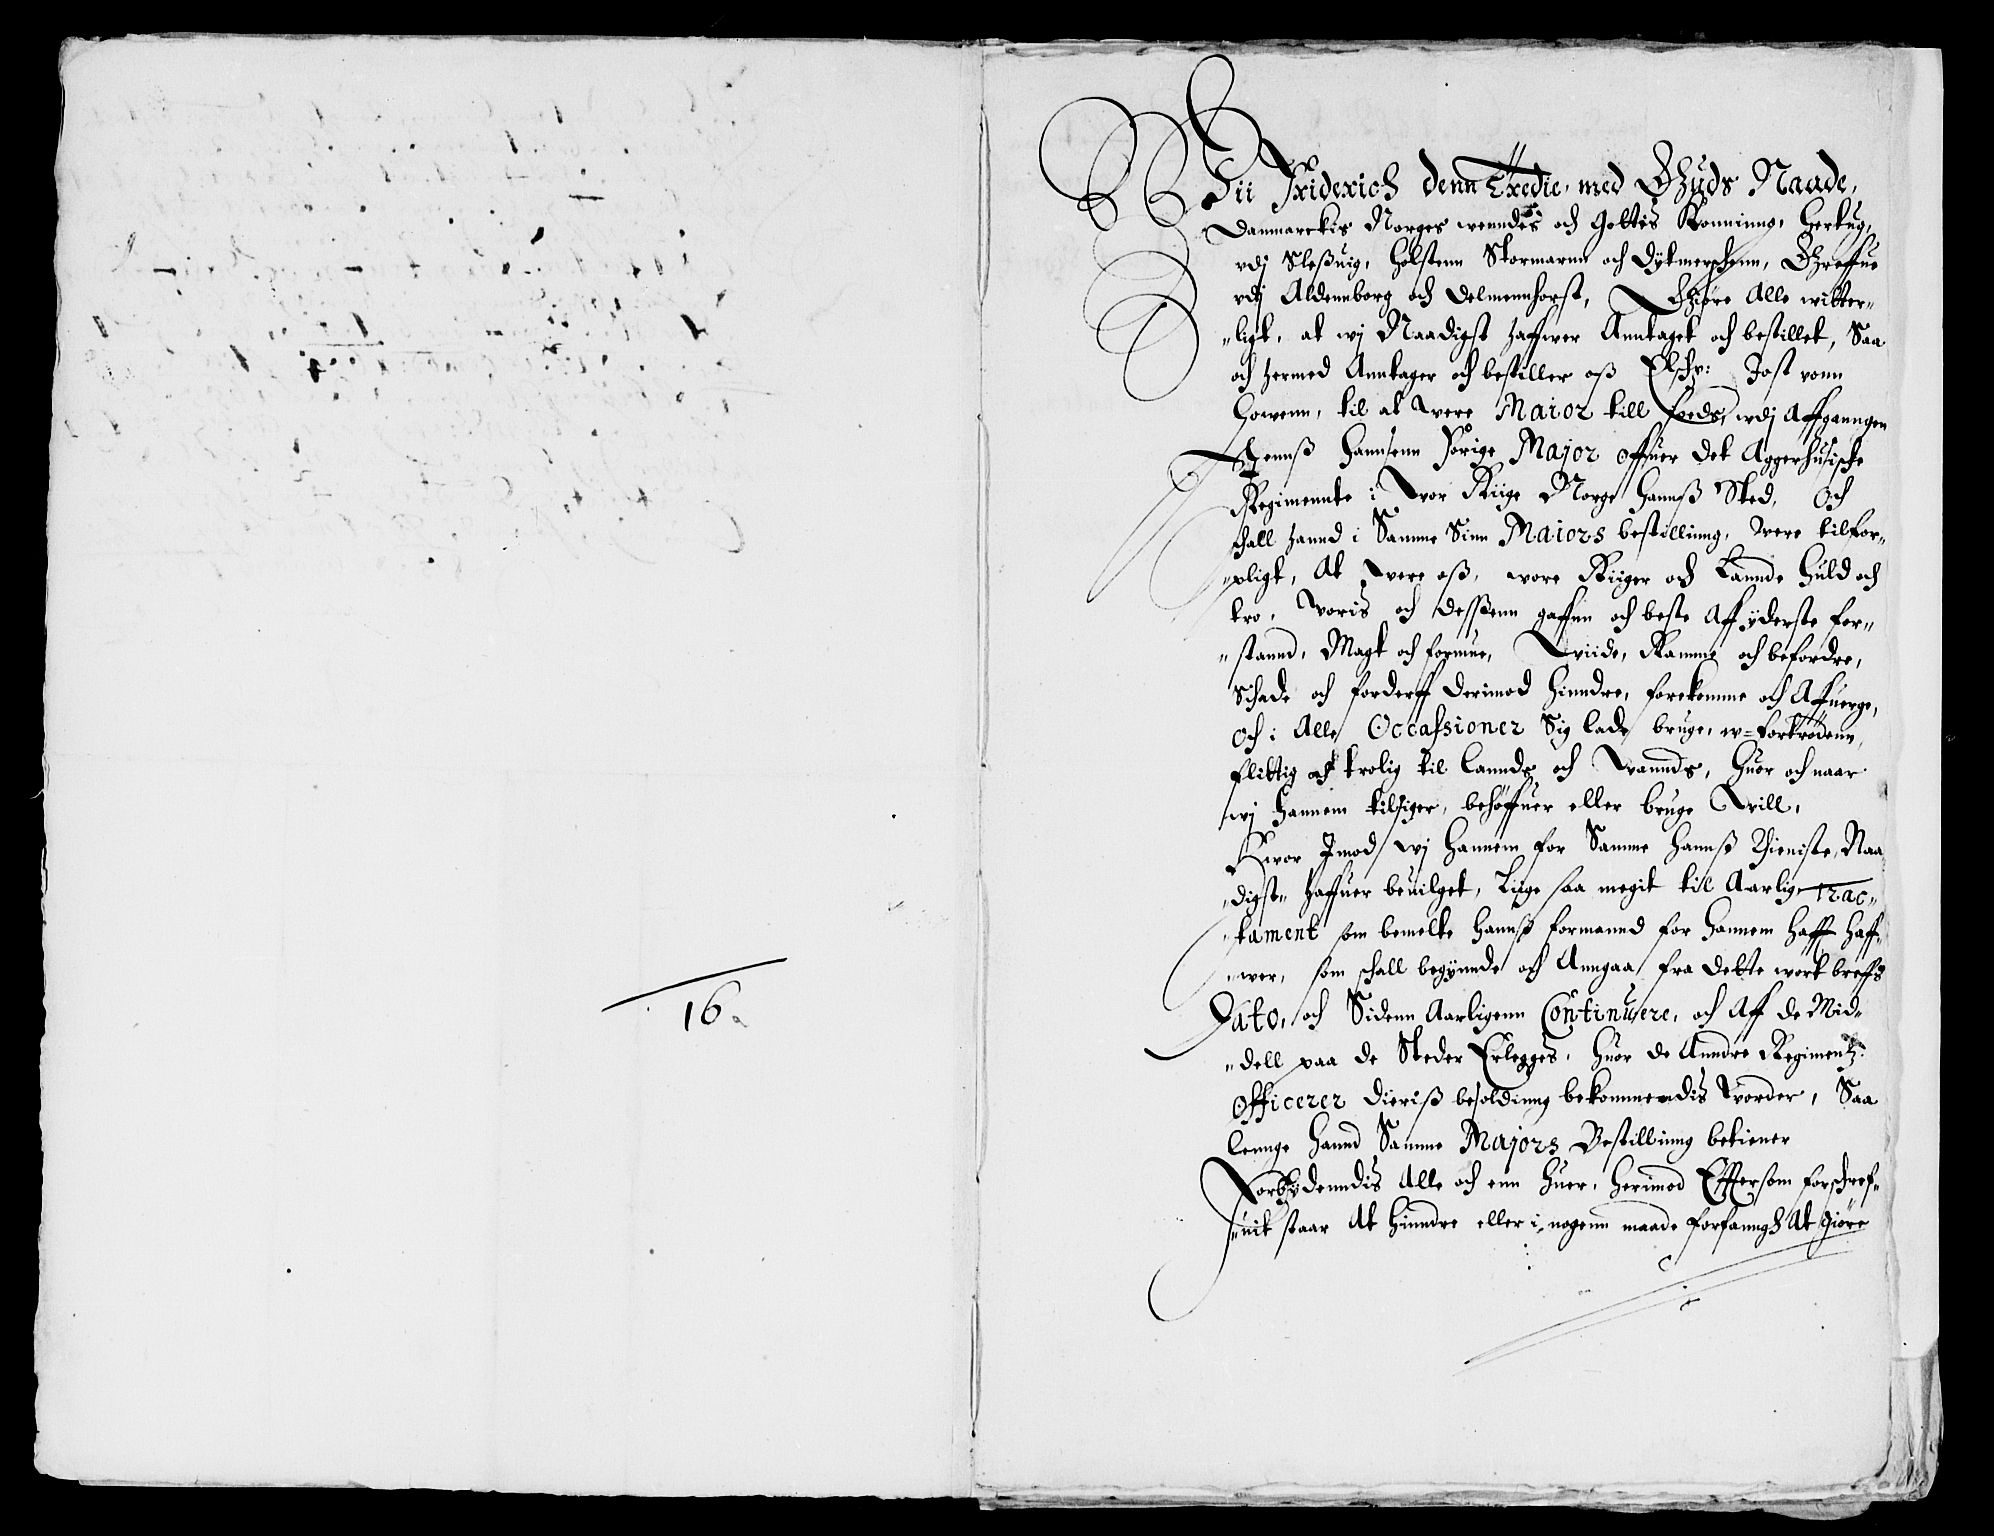 16
Wii Friderich denn Tredie, med Ghuds Naade,
Danmarckis Norges wenndes och Gottis Konninng, Hertug,
udj Sleßuig, Holstenn Stormarnn och Dytmerschenn, Greffue
udj Aldennborg och Delmennhorst, Ghiøre Alle witter„
„ligt, at wj Naadigst haffwer Anntaget och bestillet, Saa
och hermed Anntager och bestiller oß Elsch: Jost vonn
Howenn, til at were Maior till foeds, udj Affganngen
Jennß Hannsenn Forige Major offuer det Aggerhusische
Regimennte i wor Riige Norge Hannß Sted, Och
schall hannd i Samme Sinn Maiors bestillinng, were tilfor„
„pligt, At were oß, wore Riiger och Lannde Huld och
tro, woris och dessenn gaffnn och beste Aff yderste for„
„stannd, Magt och formue, wiide, Ramme och befordre,
Schade och forderff derimod hinndre, forekomme och Affuerge,
Och i Alle Occassioner Sig lade bruge, w=fortrødenn,
flittig och trolig til Lannds och wannds, Huor och naar
wj Hannem tilsiger, behøffuer eller bruge will,
Hwor Imod wj Hannem for Samme Hannß Thieniste, Naa
„digst„ haffuer beuilget, Liige saa megit til Aarlig Trac„
„tament som bemelte Hannß formannd for Hannem hafft haff„
„wer, som schall begynde och Anngaa fra dette wort breffs
Dato, och Sidenn Aarligenn Continuere, och Aff de Mid„
„dell paa de Steder Erlegges, Huor de Anndre Regimentz
Officerer dieriß besoldinng bekommendis worder, Saa
Lennge Hannd Samme Majors Bestillinng betiener
Forbydenndis Alle och enn Huer, herimod Efftersom forschref„
„uit staar At hinndre eller i nogenn maade forfanngh At giøre